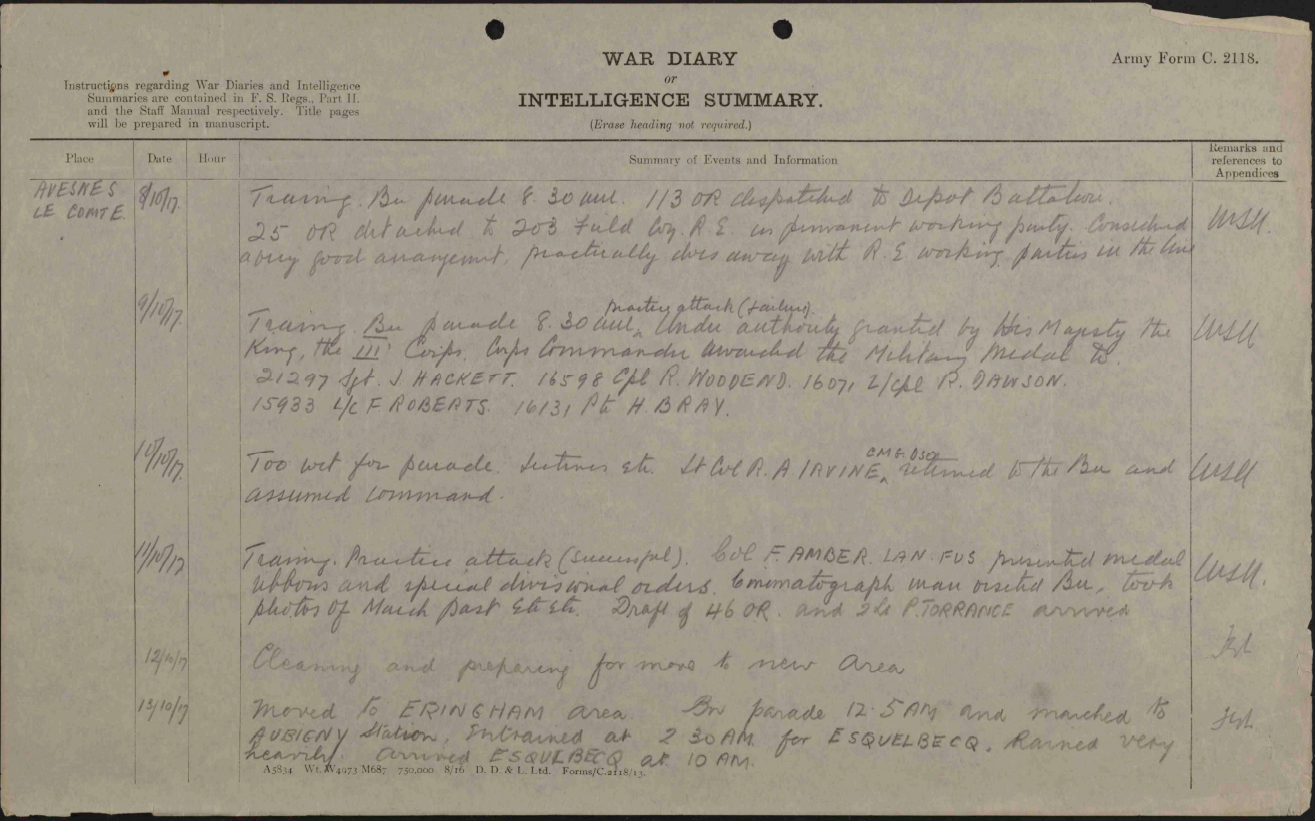 WAR DIARY
or
INTELLIGENCE SUMMARY.
(Erase heading not required.)
Army Form C. 2118.
Instructions regarding War Diaries and Intelligence
Summaries are contained in F. S. Regs., Part II.
and the Staff Manual respectively. Title pages
will be prepared in manuscript.
Place Date Hour Summary of Events and Information Remarks and references to Appendices
AVESNES LE COMTE 8/10/17. Training. Bn parade 8.30 am. 113 OR despatched to Depot Battalion.
25 OR detached to 203 Field Coy. R.E. as permanent working party. Considered
a very good arrangement, practically does away with R.E working parties in the line
9/10/17. Training. Bn parade 8.30 am, practice attack (failure). Under authority granted by His Majesty the
King, the III Corps. Corps Commander awarded the Military Medal to
21297 Sgt. J HACKETT. 16598 Cpl R. WOODEND. 16071 L/Cpl R. DAWSON.
15933 L/c F ROBERTS. 16131 Pte H. BRAY.
10/10/17. Too wet for parade. Lectures etc. Lt Col R. A IRVINE, CMG. DSO. returned to the Bn and
assumed command.
11/10/17 Training. Practice attack (successful). Col F. AMBER. LAN. FUS presented medal
ribbons and special divisional orders. Cinematograph man visited Bn, took
photos of March Past etc etc. Draft of 46 OR. and 2Lt P. TORRANCE arrived
12/10/17 Cleaning and preparing for move to new area
13/10/17 Moved to ERINGHAM area Bn parade 12.5 AM and marched to
AUBIGNY Station, Entrained at 2 30 AM for ESQUELBECQ. Rained very
heavily. arrived ESQULBECQ at 10 AM.
A5834 Wt. W4973 M687 750,000 8/16 D. D. & L. Ltd. Forms/C.2118/13.